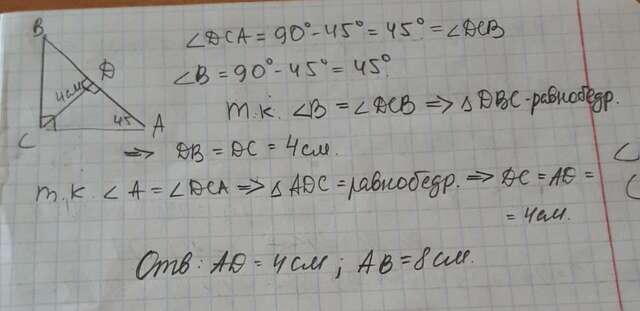 B
D
4см
C
45
A
∠DCA = 90° - 45° = 45° = ∠DCB
∠B = 90° - 45° = 45°
т.к. ∠B = ∠DCB => △DBC - равнобедр.
=> DB = DC = 4см.
т.к. ∠A = ∠DCA => △ADC = равнобедр. => DC = AD =
= 4см.
Отв: AD = 4см; AB = 8см.